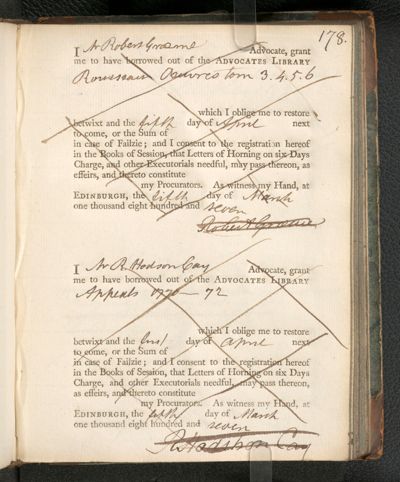 178.
I Mr Robert Graeme Advocate, grant
me to have borrowed out of the ADVOCATES LIBRARY
Rousseau Oeuvres tom 3.4.5.6
which I oblige me to restore
betwixt and the fifth day of April next
to come, or the Sum of
in case of Failzie; and I consent to the registration hereof
in the Books of Session, that Letters of Horning on six Days
Charge, and other Executorials needful, may pass thereon, as
effeirs, and thereto constitute
my Procurators. As witness my Hand, at
EDINBURGH, the fifth day of March
one thousand eight hundred and seven
Robert Graeme
I Mr R. Hodson Cay Advocate, grant
me to have borrowed out of the ADVOCATES LIBRARY
Appeals 1770-72
which I oblige me to restore
betwixt and the first day of April next
to come, or the Sum of
in case of Failzie; and I consent to the registration hereof
in the Books of Session, that Letters of Horning on six Days
Charge, and other Executorials needful, may pass thereon,
as effeirs, and thereto constitute
my Procurators. As witness my Hand, at
EDINBURGH, the fifth day of March
one thousand eight hundred and seven
R Hodshon Cay